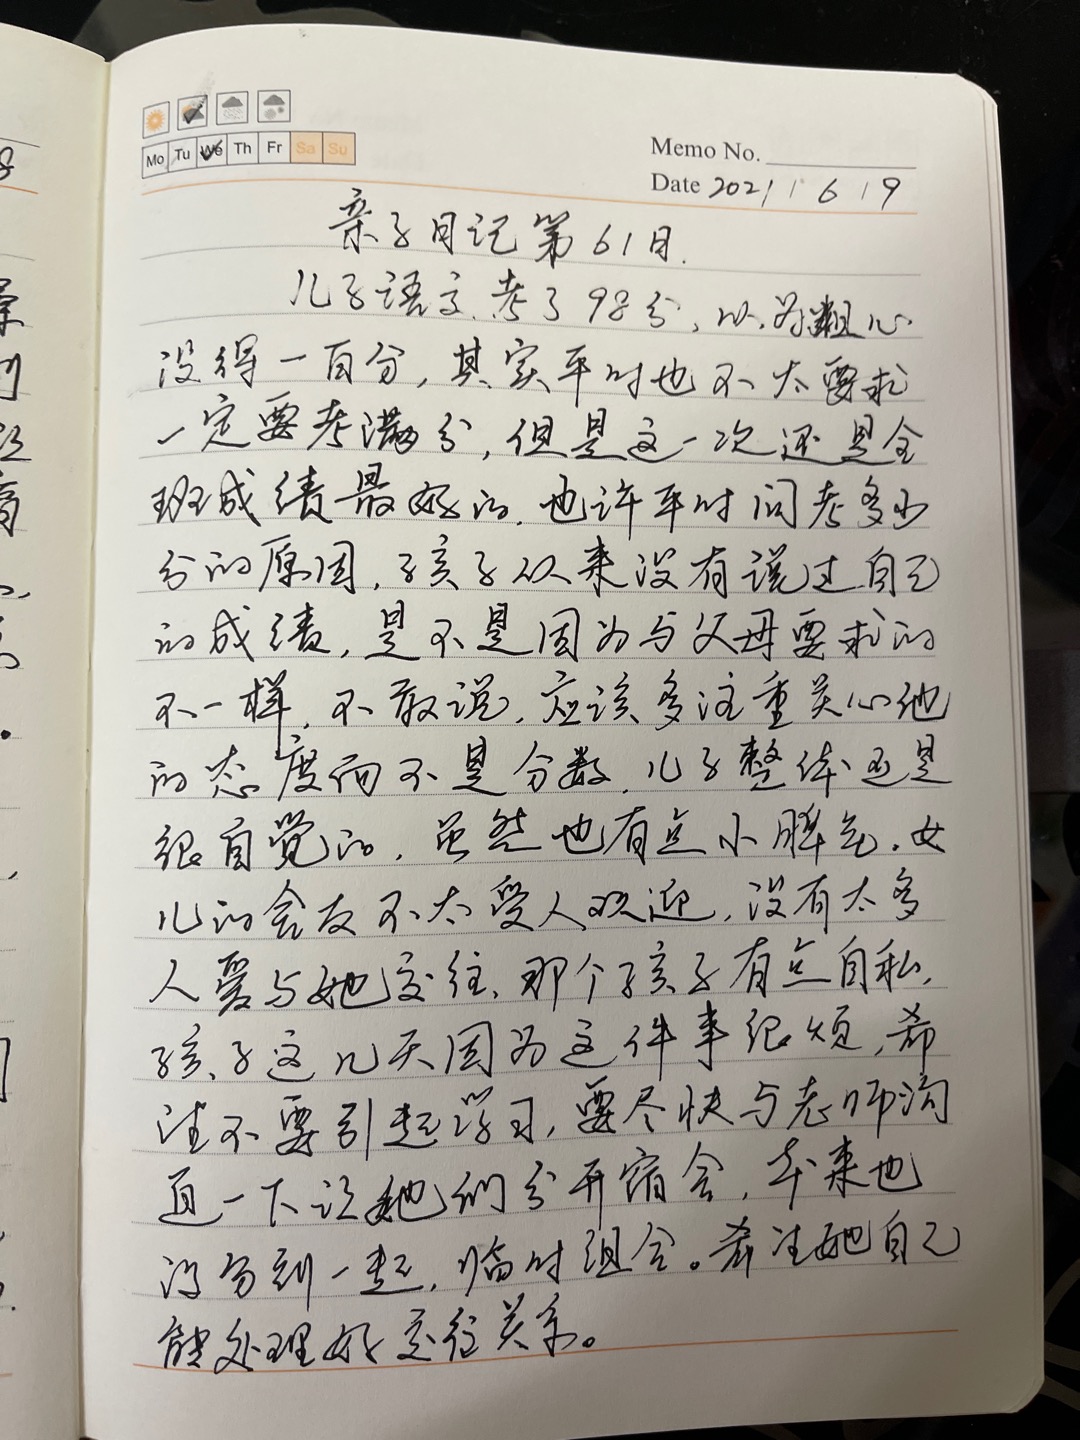 Mo Tu We Th Fr Sa Su
Memo No.
Date 2021 6 19
亲子日记第61日.
儿子语文考了98分,以为粗心
没得一百分,其实平时也不太要求
一定要考满分,但是这一次还是全
班成绩最好的.也许平时问考多少
分的原因,孩子从来没有说过自己
的成绩,是不是因为与父母要求的
不一样,不敢说,应该多注重关心他
的态度而不是分数.儿子整体还是
很自觉的,虽然也有点小脾气.女
儿的舍友不太受人欢迎,没有太多
人爱与她交往,那个孩子有点自私,
孩子这几天因为这件事很烦,希
望不要引起学习,要尽快与老师沟
通一下让她们分开宿舍,本来也
没分到一起,临时组合。希望她自己
能处理好交往关系。